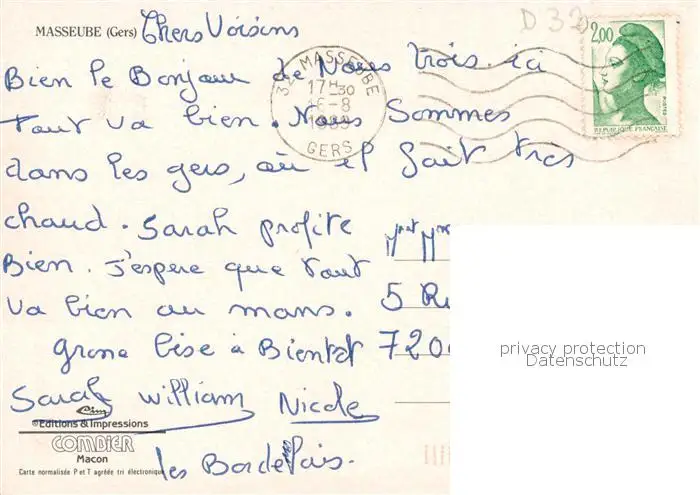 MASSEUBE (Gers) Chers Voisins
D 32
2,00
REPUBLIQUE FRANÇAISE
MASSEUBE
17H30
16-8
1989
GERS
Bien le Bonjour de Nous trois. ici
Tout va bien. Nous Sommes
dans les gers, où il fait tres
chaud. Sarah profite
Bien. J'espere que tout
va bien au mans.
grosse bise à Bientot
Sarah William Nicole
les Bordelais.
Mr et Mme
5 Ru
7200
privacy protection
Datenschutz
Cim
©Editions & Impressions
COMBIER
Macon
Carte normalisée P et T agréée tri électronique